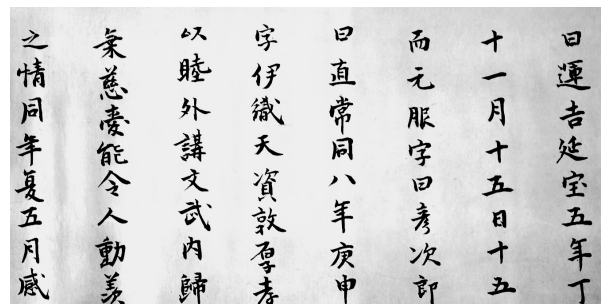 曰運吉延宝五年丁
十一月十五日十五
而元服字曰彦次郎
曰直常同八年庚申
字伊織天資敦厚孝
以睦外講文武内歸
兼慈憂能令人動羨
之情同年夏五月感